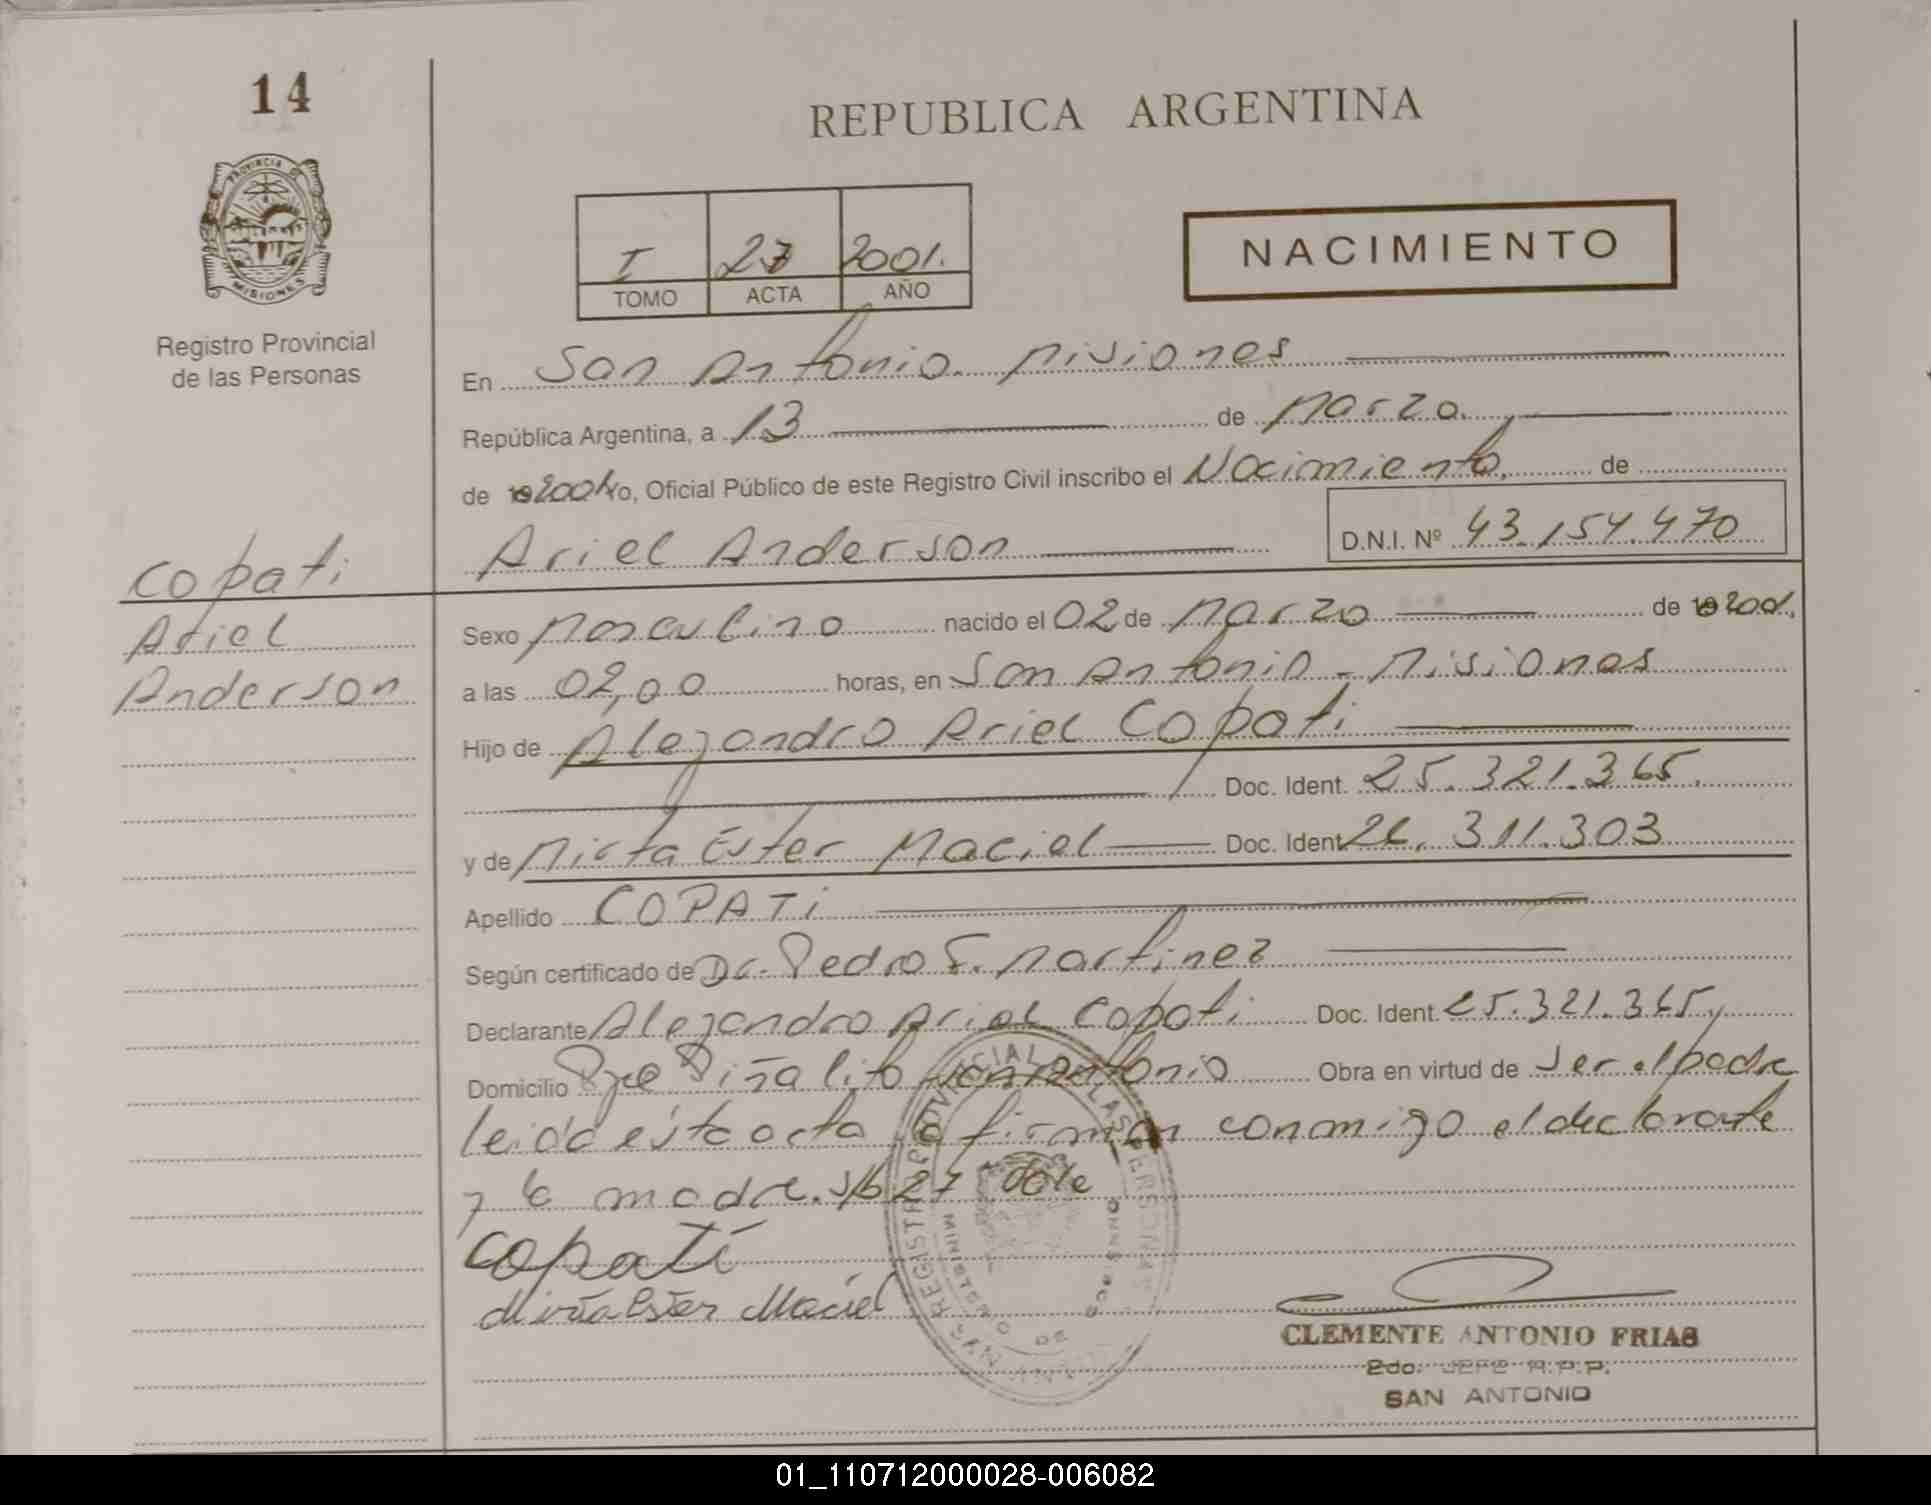 14
REPUBLICA ARGENTINA
PROVINCIA DE
MISIONES
Registro Provincial
de las Personas
I 27 2001.
TOMO ACTA AÑO
NACIMIENTO
En San Antonio. Misiones
República Argentina, a 13 de Marzo.
de 2001 Yo, Oficial Público de este Registro Civil inscribo el Nacimiento, de
Ariel Anderson D.N.I. Nº 43.154.470
Copati
Ariel
Anderson
Sexo Masculino nacido el 02 de Marzo de 2001,
a las 02,00 horas, en San Antonio - Misiones
Hijo de Alejandro Ariel Copati
Doc. Ident. 25.321.365.
y de Mirta Ester Maciel Doc. Ident 311.303
Apellido COPATi
Según certificado de Dr. Pedro F. Martinez
Declarante Alejandro Ariel Copati Doc. Ident. 25.321.365,
Domicilio Piñalito San Antonio Obra en virtud de Ser el padre
leida ésta acta la firman conmigo el declarante
y la madre. S/b 27 Vale
Copati
Mirta Ester Maciel
REGISTRO PROVINCIAL DE LAS PERSONAS
MINISTERIO DE GOBIERNO
CLEMENTE ANTONIO FRIAS
2do. JEFE R.P.P.
SAN ANTONIO
01_110712000028-006082